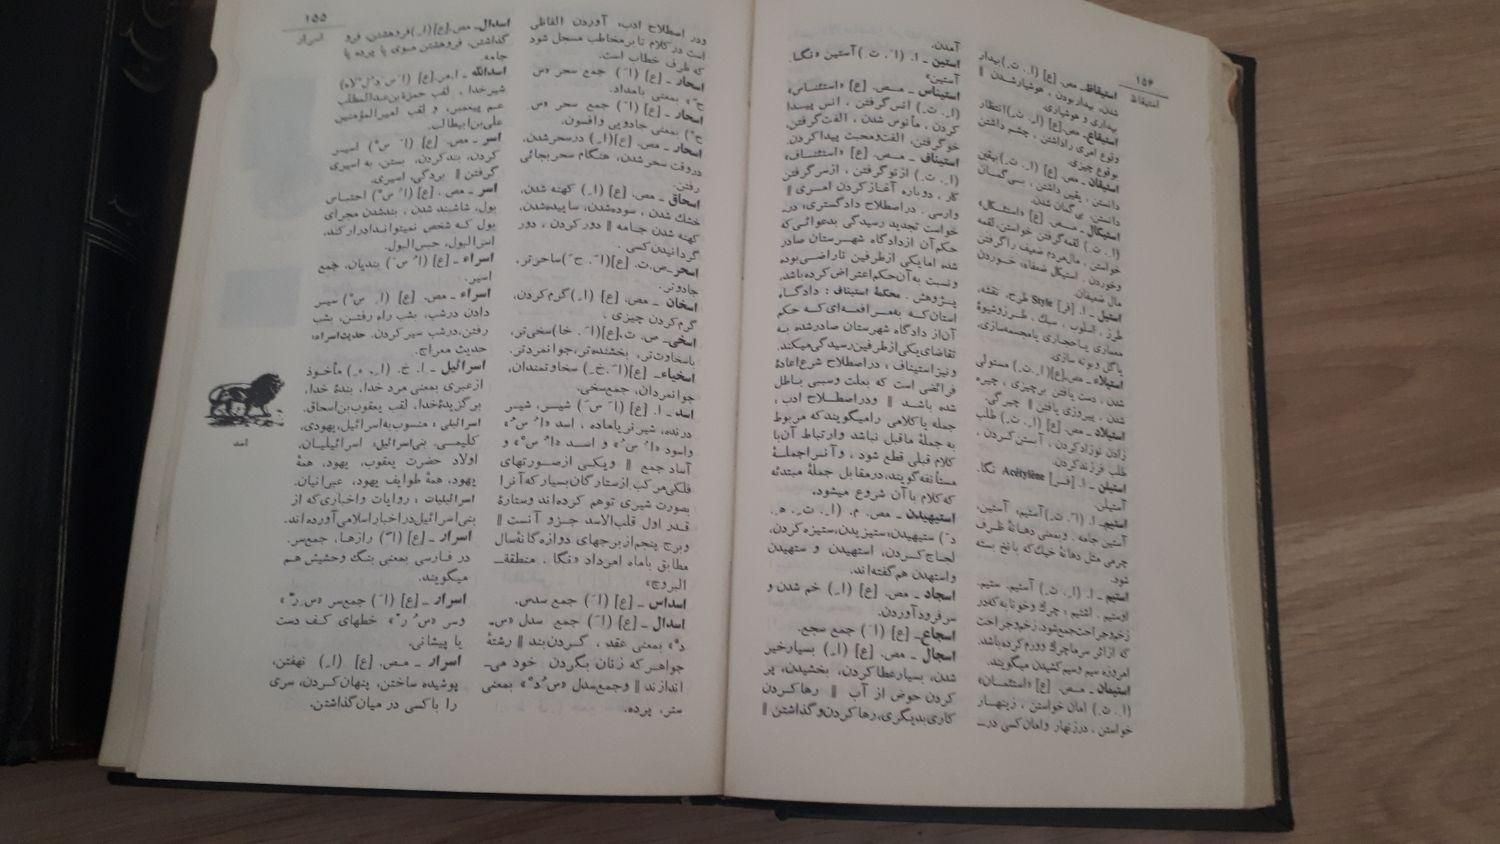 ۱۵۴
استیقاظ
استیقاظ ـ مص. [ع] (اِ. ت.) بیدار
شدن، بیدار بودن، هوشیار شدن ||
بیداری و هوشیاری.
استیقاع ـ مص. [ع] (اِ. ت.) انتظار
وقوع امری را داشتن، چشم داشتن
بوقوع چیزی.
استیقان ـ مص. [ع] (اِ. ت.) یقین
دانستن، یقین داشتن، بی گمان
دانستن، بی گمان شدن.
استیکال ـ مص. [ع] «استئکال»
(اِ. ت.) لقمه گرفتن خواستن، لقمه
خواستن، مال مردم ضعیف را گرفتن
وخوردن. استیکال ضعفاء، خوردن
مال ضعیفان.
استیل ـ ا. [فر] Style طرح، نقشه،
طرز، اسلوب، سبك، طرز وشیوهٔ
معماری یا حصاری یا مجسمه سازی،
یا گل و بوته سازی.
استیلاء ـ مص. [ع] (اِ. ت.) مستولی
شدن، دست یافتن بر چیزی، چیره
شدن، پیروزی یافتن || چیرگی.
استیلاد ـ مص. [ع] (اِ. ت.) طلب
زادن نوزاد کردن، آبستن کردن،
طلب فرزند کردن.
استیلن ـ ا. [فر] Acétylène نگا.
آستیلن.
استیم ـ ا. (اَ. ت.) آستیم، آستین،
آستین جامه. وبمعنی دهانهٔ ظرف
چرمی مثل دهانهٔ خیك که با نخ بسته
شود.
استیم ـ ا. (اِ. ت.) آستیم. ستیم.
اوستیم. اشتیم، چرك وخونابه که در
زخم وجراحت جمع شود، زخم وجراحت
که از اثر سرما چرك و ورم کرده باشد.
امروزه سیم و سیم کشیدن میگویند.
استیمان ـ مص. [ع] «استئمان»
(اِ. ت.) امان خواستن، زینهار
خواستن، در زنهار و امان کسی در ـ
آمدن.
استین ـ ا. (اَ. ت.) آستین «نگا.
آستین»
استیناس ـ مص. [ع] «استئناس»
(اِ. ت.) انس گرفتن، انس پیدا
کردن، مأنوس شدن، الفت گرفتن،
خو گرفتن، الفت ومحبت پیدا کردن.
استیناف ـ مص. [ع] «استئناف»
(اِ. ت.) از نو گرفتن، از سر گرفتن
کار، دوباره آغاز کردن امری ||
وارسی. در اصطلاح دادگستری، در ـ
خواست تجدید رسیدگی بدعوائی که
حکم آن از دادگاه شهرستان صادر
شده اما یکی از طرفین ناراضی بوده
و نسبت به آن حکم اعتراض کرده باشد،
پژوهش. محکمهٔ استیناف: دادگاه
استان که به مرافعه ای که حکم
آن از دادگاه شهرستان صادر شده به
تقاضای یکی از طرفین رسیدگی میکند.
و نیز استیناف، در اصطلاح شرع اعادهٔ
فرائضی است که بعلت وسببی باطل
شده باشد || ودر اصطلاح ادب،
جمله یا کلامی را میگویند که مربوط
به جملهٔ ماقبل نباشد وارتباط آن با
کلام قبلی قطع شود، و آنرا جملهٔ
مستأنفه گویند، در مقابل جملهٔ مبتدئه
که کلام با آن شروع میشود.
استیهیدن ـ مص. م. (اِ. ت. هِ.
دَ) ستیهیدن، ستیزیدن، ستیزه کردن،
لجاج کردن، استهیدن و ستهیدن
واستهدن هم گفته اند.
اسجاد ـ مص. [ع] (اِ) خم شدن و
سر فرود آوردن.
اسجاع ـ [ع] (اَ) جمع سجع.
اسجال ـ مص. [ع] (اِ) بسیار خیر
شدن، بسیار عطا کردن، بخشیدن، پر
کردن حوض از آب || رها کردن
کاری بدیگری، رها کردن و گذاشتن ||
۱۵۵
اسرار
ودر اصطلاح ادب، آوردن الفاظی
است در کلام تا بر مخاطب مسجل شود
که طرف خطاب است.
اسحار ـ [ع] (اَ) جمع سحر «س
ح» بمعنی بامداد.
اسحار ـ [ع] (اَ) جمع سحر «سِ
ح» بمعنی جادویی وافسون.
اسحار ـ مص. [ع] (اِ) در سحر شدن،
در وقت سحر شدن، هنگام سحر بجائی
رفتن.
اسحاق ـ مص. [ع] (اِ) کهنه شدن،
خشك شدن، سوده شدن، ساییده شدن،
کهنه شدن جامه || دور کردن، دور
گردانیدن کسی.
اسحر ـ ص. ت. [ع] (اَ. حَ) ساحرتر،
جادوتر.
اسخان ـ مص. [ع] (اِ) گرم کردن،
گرم کردن چیزی.
اسخی ـ ص. ت. [ع] (اَ. خا) سخی تر،
با سخاوت تر، بخشنده تر، جوانمردتر.
اسخیاء ـ [ع] (اَ. خِ) سخاوتمندان،
جوانمردان، جمع سخی.
اسد ـ ا. [ع] (اَ سَ) شیر، شیر
درنده، شیر نر یا ماده، اسد «اُ سُ»
واسود «اُ سُ» و اسد «اُ سْ» و
آساد جمع || ویکی از صورتهای
فلکی مرکب از ستارگان بسیار که آنرا
بصورت شیری توهم کرده اند وستارهٔ
قدر اول قلب الاسد جزو آنست ||
وبرج پنجم از برجهای دوازده گانهٔ سال
مطابق با ماه امرداد «نگا. منطقة ـ
البروج»
اسداس ـ [ع] (اَ) جمع سدس.
اسدال ـ [ع] (اَ) جمع سدل «س ـ
د» بمعنی عقد، گردن بند || رشتهٔ
جواهر که زنان بگردن خود می ـ
اندازند || وجمع سدل «سُ دْ» بمعنی
ستر، پرده.
اسدال ـ مص. [ع] (اِ) فروهشتن، فرو
گذاشتن، فروهشتن موی یا پرده یا
جامه.
اسدالله ـ ا. مر. [ع] (اَ س دُ لْ لاه)
شیر خدا، لقب حمزة بن عبدالمطلب
عم پیغمبر، و لقب امیرالمؤمنین
علی بن ابیطالب.
اسر ـ مص. [ع] (اَ سْ) اسیر
کردن، بند کردن، بستن، به اسیری
گرفتن || بردگی، اسیری.
اسر ـ مص. [ع] (اُ سْ) احتباس
بول، شاشبند شدن، بند شدن مجرای
بول که شخص نمیتواند ادرار کند،
اسر البول، حبس البول.
اسراء ـ [ع] (اُ سَ) بندیان، جمع
اسیر.
اسراء ـ مص. [ع] (اِ سْ) سیر
دادن در شب، بشب راه رفتن، بشب
رفتن، در شب سیر کردن. حدیث اسراء:
حدیث معراج.
اسرائیل ـ ا. خ. (اِ. ءِ) مأخوذ
از عبری بمعنی مرد خدا، بندهٔ خدا،
برگزیدهٔ خدا، لقب یعقوب بن اسحاق.
اسرائیلی: منسوب به اسرائیل، یهودی،
کلیمی. بنی اسرائیل: اسرائیلیان،
اولاد حضرت یعقوب، یهود، همهٔ
یهود، همهٔ طوایف یهود، عبرانیان.
اسرائیلیات: روایات و اخباری که از
بنی اسرائیل در اخبار اسلامی آورده اند.
اسرار ـ [ع] (اَ) رازها، جمع سر.
در فارسی بمعنی بنگ وحشیش هم
میگویند.
اسرار ـ [ع] (اَ) جمع سر «سِ رّ»
وسر «سُ رّ» خطهای کف دست
یا پیشانی.
اسرار ـ مص. [ع] (اِ) نهفتن،
پوشیده ساختن، پنهان کردن، سری
را با کسی در میان گذاشتن.
اسد